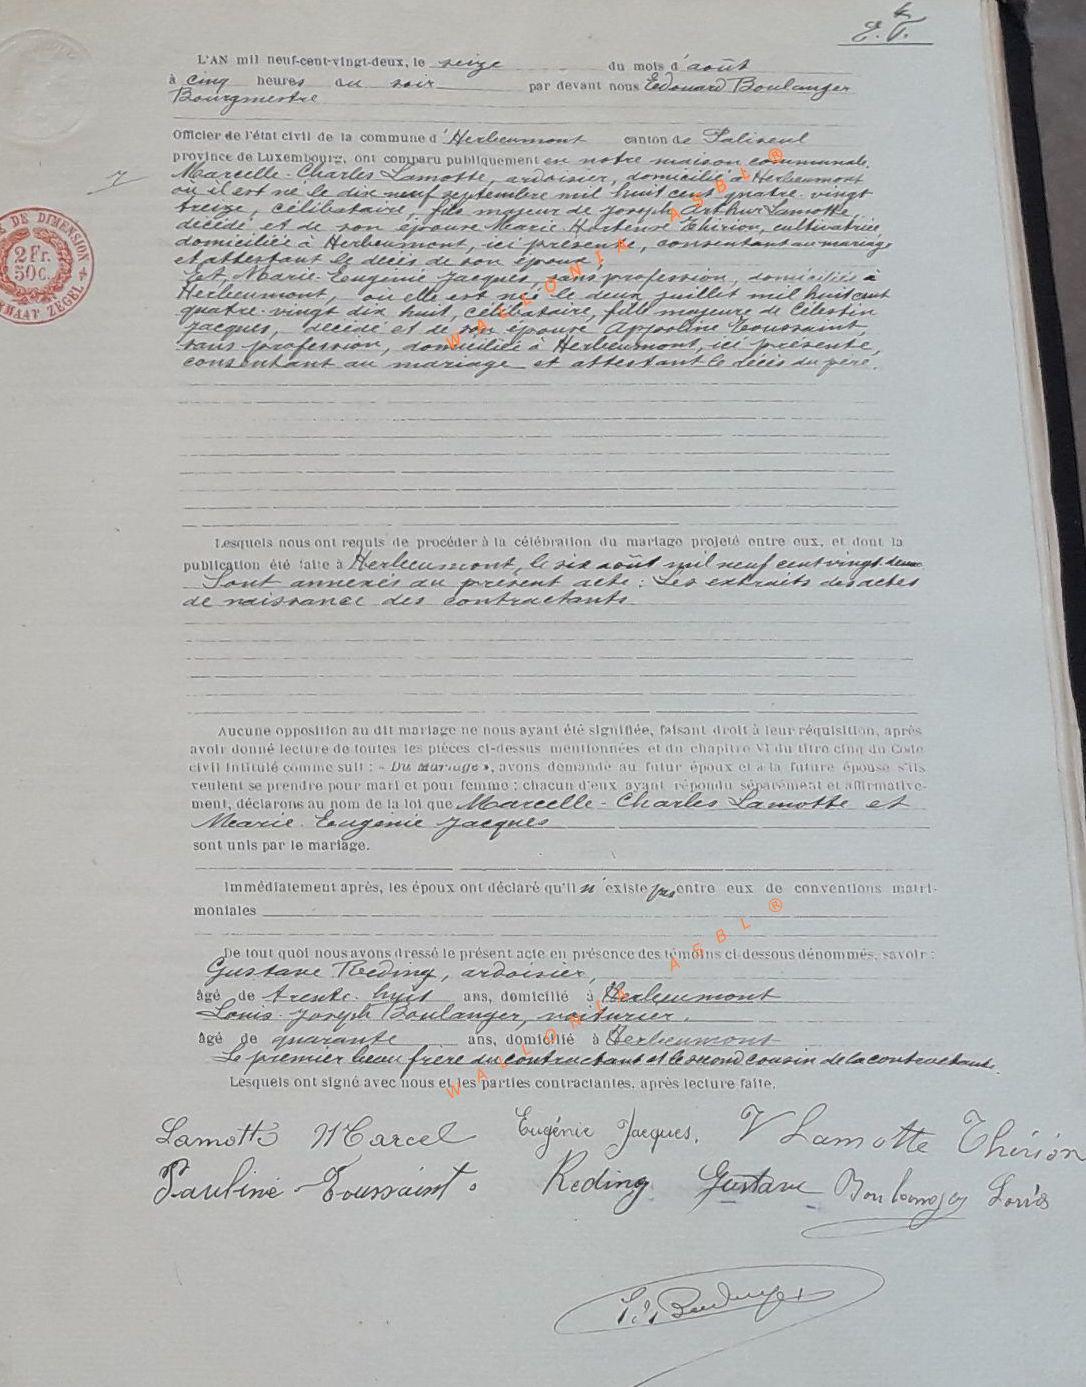 L'AN mil neuf-cent-vingt-deux, le seize du mois d'août
à cinq heures du soir par devant nous Edouard Boulanger
Bourgmestre
Officier de l'état civil de la commune d'Herbeumont canton de Paliseul
province de Luxembourg, ont comparu publiquement en notre maison communale,
Marcelle-Charles Lamotte, ardoisier, domicilié à Herbeumont
où il est né le dix neuf septembre mil huit cent quatre-vingt
treize, célibataire, fils majeur de Joseph Arthur Lamotte,
décédé et de son épouse Marie Hortense Thirion, cultivatrice,
domiciliée à Herbeumont, ici présente, consentant au mariage
et attestant le décès de son époux,
Et, Marie-Eugénie Jacques, sans profession, domiciliée à
Herbeumont, où elle est née le deux juillet mil huit cent
quatre-vingt dix huit, célibataire, fille majeure de Célestin
Jacques, décédé et de son épouse Appoline Toussaint,
sans profession, domiciliée à Herbeumont, ici présente,
consentant au mariage et attestant le décès du père.
7
TIMBRE DE DIMENSION
2 Fr.
50c.
FORMAAT ZEGEL
Lesquels nous ont requis de procéder à la célébration du mariage projeté entre eux, et dont la
publication été faite à Herbeumont, le six août mil neuf cent vingt-deux
Sont annexés au présent acte: Les extraits des actes
de naissance des contractants.
Aucune opposition au dit mariage ne nous ayant été signifiée, faisant droit à leur réquisition, après
avoir donné lecture de toutes les pièces ci-dessus mentionnées et du chapitre VI du titre cinq du Code
civil intitulé comme suit : « Du Mariage », avons demandé au futur époux et à la future épouse s'ils
veulent se prendre pour mari et pour femme ; chacun d'eux ayant répondu séparément et affirmative-
ment, déclarons au nom de la loi que Marcelle-Charles Lamotte et
Marie-Eugénie Jacques
sont unis par le mariage.
Immédiatement après, les époux ont déclaré qu'il n'existe pas entre eux de conventions matri-
moniales
De tout quoi nous avons dressé le présent acte en présence des témoins ci-dessous dénommés, savoir :
Gustave Reding, ardoisier,
âgé de trente-huit ans, domicilié à Herbeumont
Louis-Joseph Boulanger, voiturier.
âgé de quarante ans, domicilié à Herbeumont
Le premier beau frère du contractant et le second cousin de la contractante.
Lesquels ont signé avec nous et les parties contractantes, après lecture faite.
Lamotte Marcel Eugénie Jacques, V Lamotte Thirion
Pauline Toussaint. Reding Gustave Boulanger Louis
WALLONIA ASBL ®
WALLONIA ASBL ®